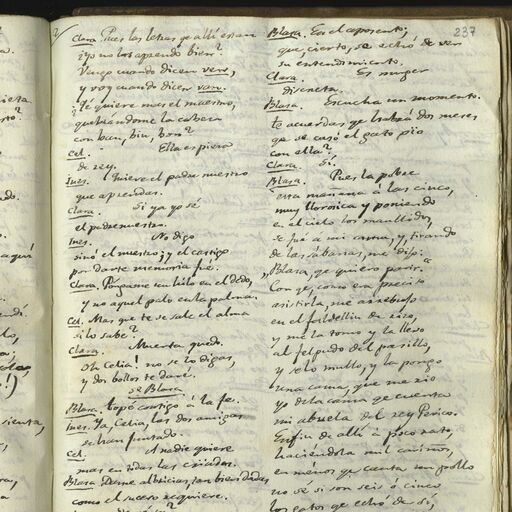 237
Clara. Pues las letras qe allí están
¿yo no las aprendo bien?
Vengo cuando dicen ven,
y voy cuando dicen van.
Qé quiere mas el maestro,
quebrándome la cabeza
con ban, bin, bon?
Cel. Ella es pieza
de rey.
Ines. Quiere el padre nuestro
que aprendas.
Clara. Si ya yo sé
el padrenuestro.
Ines. No digo
sinó el nuestro; y el castigo
por darte memoria fué.
Clara. Póngame un hilo en el dedo,
y no aquel palo en la palma.
Cel. Mas que te se sale el alma
si lo sabe?
Clara. Muerta quedo.
Oh Celia! no se lo digas,
y dos bollos te daré.
Se Blasa
Blasa. topé contigo á la fe.
Ines. Ya, Celia, las dos amigas
se han juntado.
Cel. A nadie quiere
mas en todas las criadas.
Blasa Dame albricias, tan bien dadas,
como el suceso requiere.
Blasa. En el aposento;
que, cierto, se echó de ver
su entendimiento.
Clara. Es muger
discreta.
Blasa. Escucha un momento.
te acuerdas qe habrá dos meses
qe se casó el gato pio
con ella?
Clara. Sí.
Blasa. Pues la pobre
esta mañana á las cinco,
muy llorosica y poniendo
en el cielo los maullidos,
se fué a mi cama, y, tirando
de las sábanas, me dijo:
"Blasa, qe quiero parir."
Con qe, como era preciso
asistirla, me arrebujo
en el faldellin de rizo,
y me la tomo y la llevo
al felpudo del pasillo,
y se lo mullo, y la pongo
una cama, que me rio
yo de la cama qe cuenta
mi abuela del rey Perico.
Enfin de allí a poco rato,
haciéndola mil cariños,
en ménos qe canta un pollo
no se si son seis ó cinco
los gatos qe echó de sí,